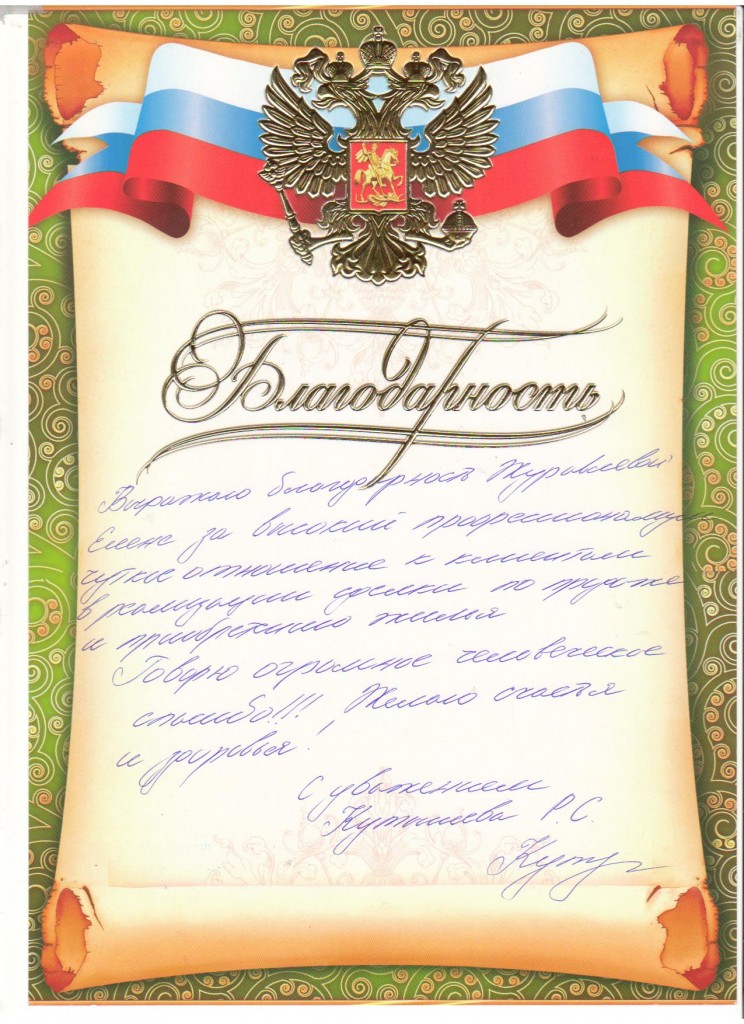 Благодарность
Выражаю благодарность Журавлевой
Елене за высокий профессионализм,
чуткое отношение к клиентам
в реализации сделки по продаже
и приобретению жилья
Говорю огромное человеческое
спасибо!!! Желаю счастья
и здоровья!
С уважением
Р.С.